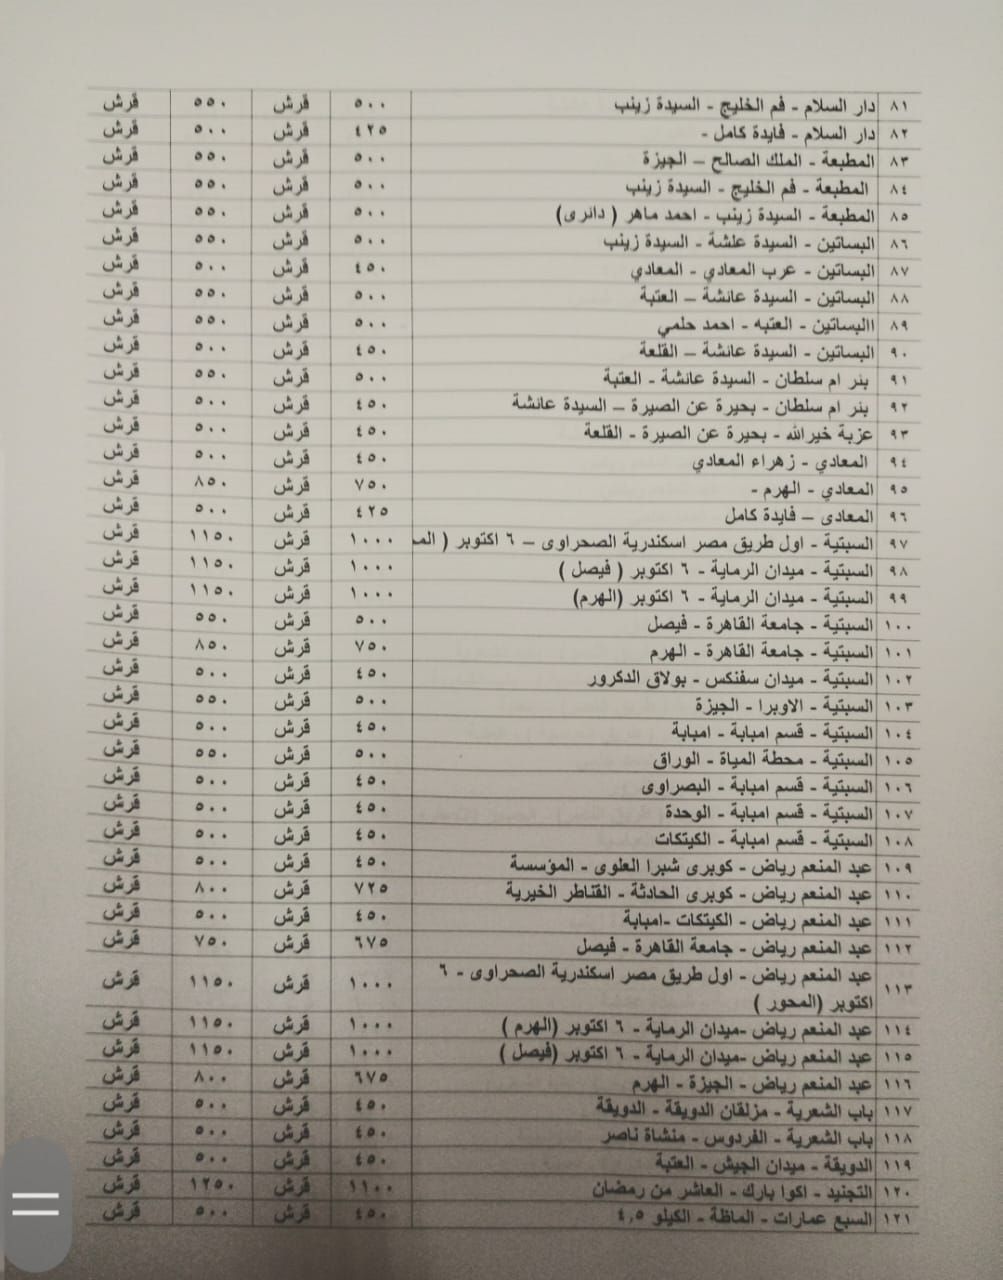 ٨١ دار السلام - فم الخليج - السيدة زينب ٥٠٠ قرش ٥٥٠ قرش
٨٢ دار السلام - فايدة كامل - ٤٢٥ قرش ٥٠٠ قرش
٨٣ المطبعة - الملك الصالح – الجيزة ٥٠٠ قرش ٥٥٠ قرش
٨٤ المطبعة - فم الخليج - السيدة زينب ٥٠٠ قرش ٥٥٠ قرش
٨٥ المطبعة - السيدة زينب - احمد ماهر ( دائرى) ٥٠٠ قرش ٥٥٠ قرش
٨٦ البساتين - السيدة علشة - السيدة زينب ٥٠٠ قرش ٥٥٠ قرش
٨٧ البساتين - عرب المعادي - المعادي ٤٥٠ قرش ٥٠٠ قرش
٨٨ البساتين - السيدة عائشة – العتبة ٥٠٠ قرش ٥٥٠ قرش
٨٩ االبساتين - العتبه - احمد حلمي ٥٠٠ قرش ٥٥٠ قرش
٩٠ البساتين - السيدة عائشة – القلعة ٤٥٠ قرش ٥٠٠ قرش
٩١ بئر ام سلطان - السيدة عائشة - العتبة ٥٠٠ قرش ٥٥٠ قرش
٩٢ بئر ام سلطان - بحيرة عن الصيرة – السيدة عائشة ٤٥٠ قرش ٥٠٠ قرش
٩٣ عزبة خيرالله - بحيرة عن الصيرة - القلعة ٤٥٠ قرش ٥٠٠ قرش
٩٤ المعادي - زهراء المعادي ٤٥٠ قرش ٥٠٠ قرش
٩٥ المعادي - الهرم - ٧٥٠ قرش ٨٥٠ قرش
٩٦ المعادى – فايدة كامل ٤٢٥ قرش ٥٠٠ قرش
٩٧ السبتية - اول طريق مصر اسكندرية الصحراوى – ٦ اكتوبر ( المـ ١٠٠٠ قرش ١١٥٠ قرش
٩٨ السبتية - ميدان الرماية - ٦ اكتوبر ( فيصل ) ١٠٠٠ قرش ١١٥٠ قرش
٩٩ السبتية - ميدان الرماية - ٦ اكتوبر (الهرم) ١٠٠٠ قرش ١١٥٠ قرش
١٠٠ السبتية - جامعة القاهرة - فيصل ٥٠٠ قرش ٥٥٠ قرش
١٠١ السبتية - جامعة القاهرة - الهرم ٧٥٠ قرش ٨٥٠ قرش
١٠٢ السبتية - ميدان سفنكس - بولاق الدكرور ٤٥٠ قرش ٥٠٠ قرش
١٠٣ السبتية - الاوبرا - الجيزة ٥٠٠ قرش ٥٥٠ قرش
١٠٤ السبتية - قسم امبابة - امبابة ٤٥٠ قرش ٥٠٠ قرش
١٠٥ السبتية - محطة المياة - الوراق ٥٠٠ قرش ٥٥٠ قرش
١٠٦ السبتية - قسم امبابة - البصراوى ٤٥٠ قرش ٥٠٠ قرش
١٠٧ السبتية - قسم امبابة - الوحدة ٤٥٠ قرش ٥٠٠ قرش
١٠٨ السبتية - قسم امبابة - الكيتكات ٤٥٠ قرش ٥٠٠ قرش
١٠٩ عبد المنعم رياض - كوبرى شبرا العلوى - المؤسسة ٤٥٠ قرش ٥٠٠ قرش
١١٠ عبد المنعم رياض - كوبرى الحادثة - القناطر الخيرية ٧٢٥ قرش ٨٠٠ قرش
١١١ عبد المنعم رياض - الكيتكات -امبابة ٤٥٠ قرش ٥٠٠ قرش
١١٢ عبد المنعم رياض - جامعة القاهرة - فيصل ٦٧٥ قرش ٧٥٠ قرش
١١٣ عبد المنعم رياض - اول طريق مصر اسكندرية الصحراوى - ٦ ١٠٠٠ قرش ١١٥٠ قرش
اكتوبر (المحور )
١١٤ عبد المنعم رياض -ميدان الرماية - ٦ اكتوبر (الهرم ) ١٠٠٠ قرش ١١٥٠ قرش
١١٥ عبد المنعم رياض -ميدان الرماية - ٦ اكتوبر (فيصل ) ١٠٠٠ قرش ١١٥٠ قرش
١١٦ عبد المنعم رياض - الجيزة - الهرم ٦٧٥ قرش ٨٠٠ قرش
١١٧ باب الشعرية - مزلقان الدويقة - الدويقة ٤٥٠ قرش ٥٠٠ قرش
١١٨ باب الشعرية - الفردوس - منشاة ناصر ٤٥٠ قرش ٥٠٠ قرش
١١٩ الدويقة - ميدان الجيش - العتبة ٤٥٠ قرش ٥٠٠ قرش
١٢٠ التجنيد - اكوا بارك - العاشر من رمضان ١١٠٠ قرش ١٢٥٠ قرش
١٢١ السبع عمارات - الماظة - الكيلو ٤,٥ ٤٥٠ قرش ٥٠٠ قرش